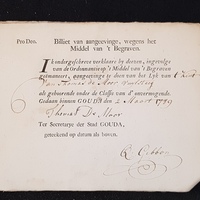 Pro Deo.
Billiet van aangeevinge, wegens het
Middel van 't Begraven.
IK ondergeschreve verklaare by deezen, ingevolge
van de Ordonnantie op 't Middel van 't Begraven
geëmaneert, aangeevinge te doen van het Lyk van
als gehoorende onder de Classis van d' onvermogende.
Gedaan binnen GOUDA, den 2 Maart 1789
Thomas De Moor
Ter Secretarye der Stad GOUDA,
geteekend op datum als boven.